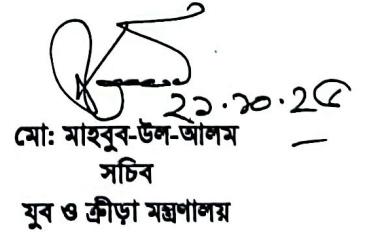 ২১.১০.২৫
মো: মাহবুব-উল-আলম
সচিব
যুব ও ক্রীড়া মন্ত্রণালয়